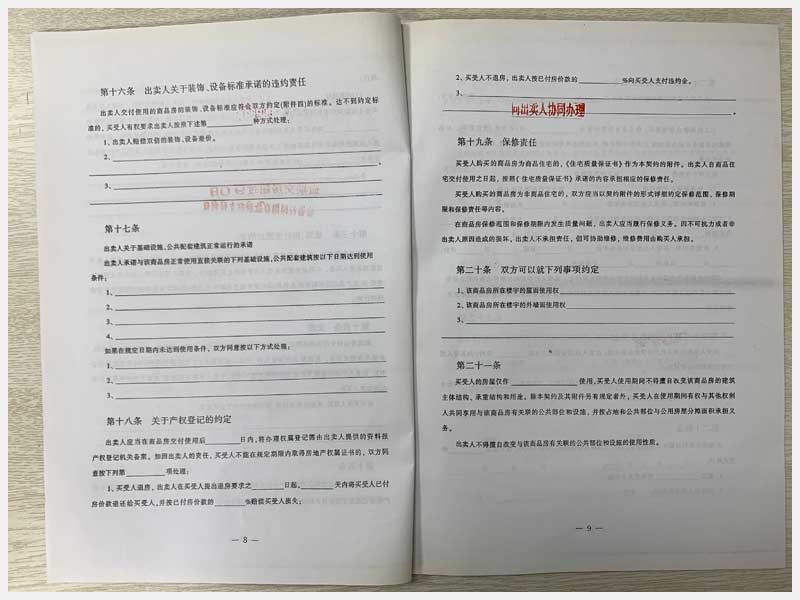 第十六条 出卖人关于装饰、设备标准承诺的违约责任
出卖人交付使用的商品房的装饰、设备标准应符合双方约定(附件四)的标准。达不到约定标
准的，买受人有权要求出卖人按照下述第____种方式处理：
1、出卖人赔偿双倍的装饰、设备差价。
2、
3、
第十七条
出卖人关于基础设施、公共配套建筑正常运行的承诺
出卖人承诺与该商品房正常使用直接关联的下列基础设施、公共配套建筑按以下日期达到使用
条件：
1、
2、
3、
4、
如果在规定日期内未达到使用条件，双方同意按以下方式处理：
1、
2、
3、
第十八条 关于产权登记的约定
出卖人应当在商品房交付使用后____日内，将办理权属登记需由出卖人提供的资料报
产权登记机关备案。如因出卖人的责任，买受人不能在规定期限内取得房地产权属证书的，双方同
意按下列第____项处理：
1、买受人退房，出卖人在买受人提出退房要求之____日起，____天内将买受人已付
房价款退还给买受人，并按已付房价款的____%赔偿买受人损失；
— 8 —
2、买受人不退房，出卖人按已付房价款的____%向买受人支付违约金。
3、
向出卖人协同办理
第十九条 保修责任
买受人购买的商品房为商品住宅的，《住宅质量保证书》作为本契约的附件。出卖人自商品住
宅交付使用之日起，按照《住宅质量保证书》承诺的内容承担相应的保修责任。
买受人购买的商品房为非商品住宅的，双方应当以契约附件的形式详细约定保修范围、保修期
限和保修责任等内容。
在商品房保修范围和保修期限内发生质量问题，出卖人应当履行保修义务。因不可抗力或者非
出卖人原因造成的损坏，出卖人不承担责任，但可协助维修，维修费用由购买人承担。
第二十条 双方可以就下列事项约定
1、该商品房所在楼宇的屋面使用权
2、该商品房所在楼宇的外墙面使用权
3、
第二十一条
买受人的房屋仅作____使用，买受人使用期间不得擅自改变该商品房的建筑
主体结构、承重结构和用途。除本契约及其附件另有规定者外，买受人在使用期间有权与其他权利
人共同享用与该商品房有关联的公共部位和设施，并按占地和公共部位与公用房屋分摊面积承担义
务。
出卖人不得擅自改变与该商品房有关联的公共部位和设施的使用性质。
— 9 —